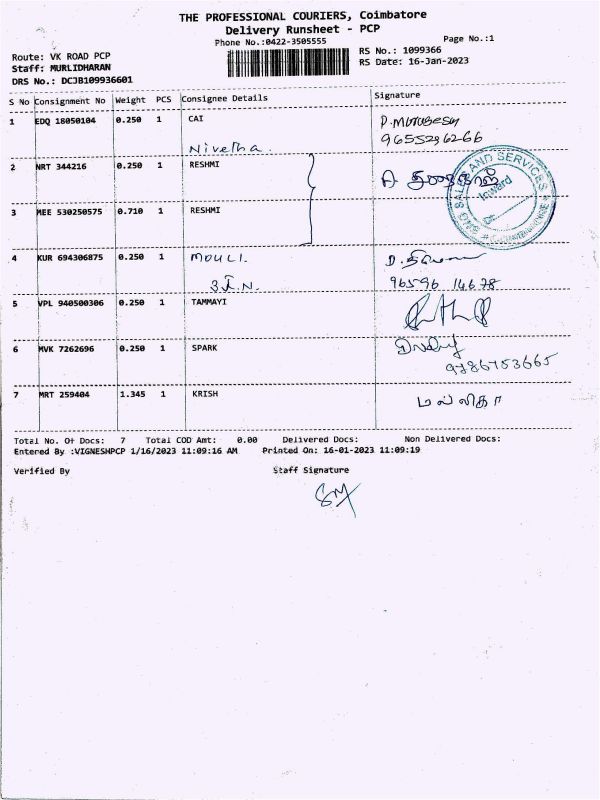 THE PROFESSIONAL COURIERS, Coimbatore
Delivery Runsheet - PCP
Phone No.:0422-3505555
Page No.:1
Route: VK ROAD PCP
RS No.: 1099366
Staff: MURLIDHARAN
RS Date: 16-Jan-2023
DRS No.: DCJB109936601
S No Consignment No Weight PCS Consignee Details Signature
1 EDQ 18050104 0.250 1 CAI P. Murugesh
Nivetha. 9655296266
2 NRT 344216 0.250 1 RESHMI
SALES AND SERVICES
Inward
3 MEE 530250575 0.710 1 RESHMI
4 KUR 694306875 0.250 1 MOULI.
96596 14678
5 VPL 940500306 0.250 1 TAMMAYI
6 MVK 7262696 0.250 1 SPARK
9786753665
7 MRT 259404 1.345 1 KRISH மல்லிகா
Total No. Of Docs: 7 Total COD Amt: 0.00 Delivered Docs: Non Delivered Docs:
Entered By :VIGNESHPCP 1/16/2023 11:09:16 AM Printed On: 16-01-2023 11:09:19
Verified By Staff Signature